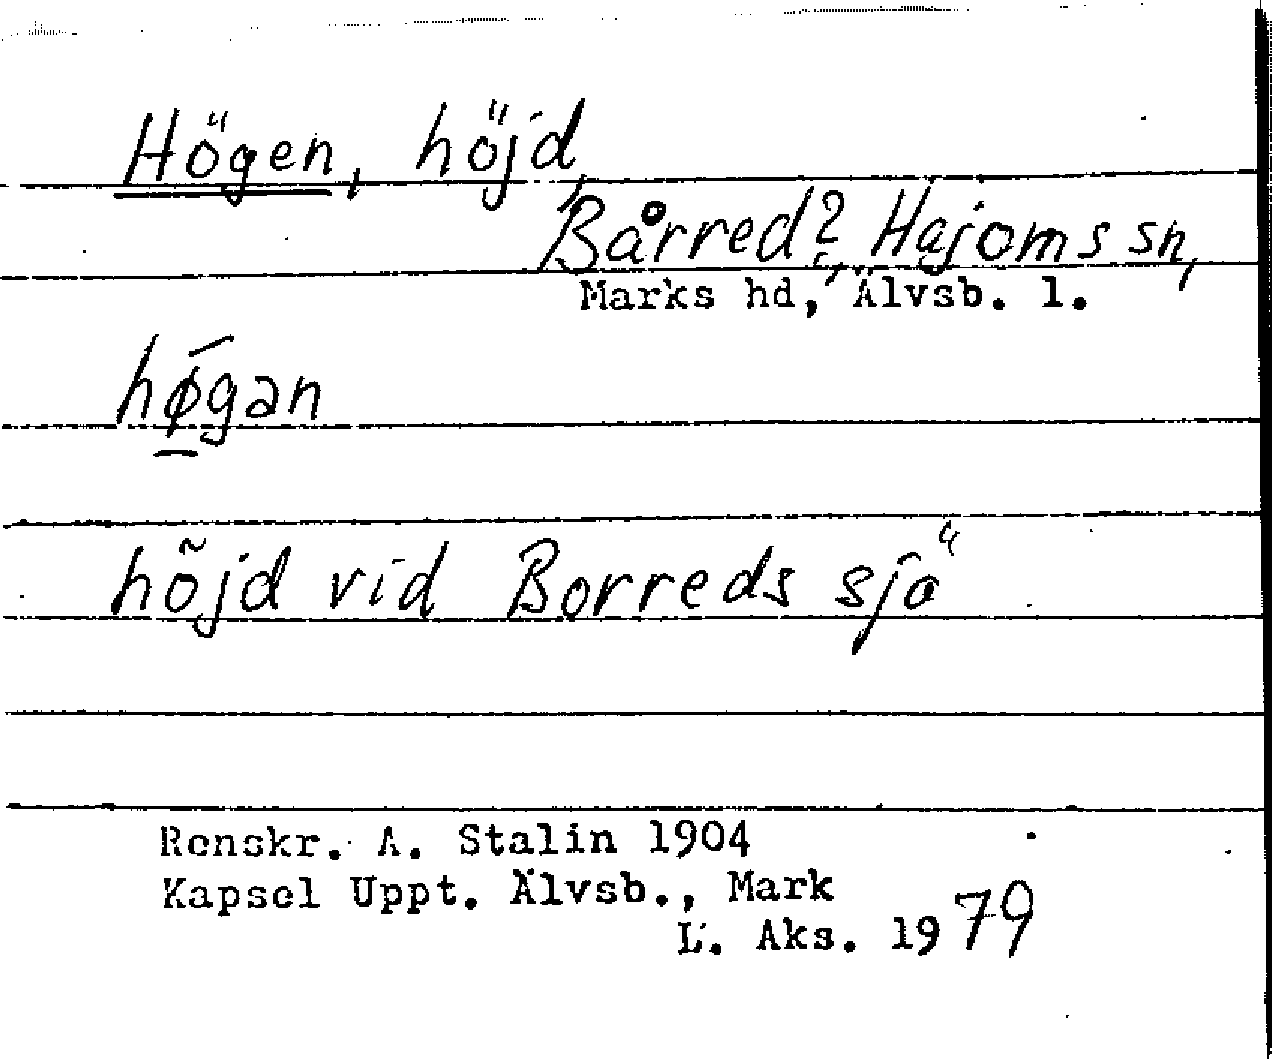 Högen, höjd,
Bårred? Hajoms sn,
Marks hd, Älvsb. l.
hǿgan
höjd vid Borreds sjö
Renskr. A. Stalin 1904
Kapsel Uppt. Älvsb., Mark
L. Aks. 1979